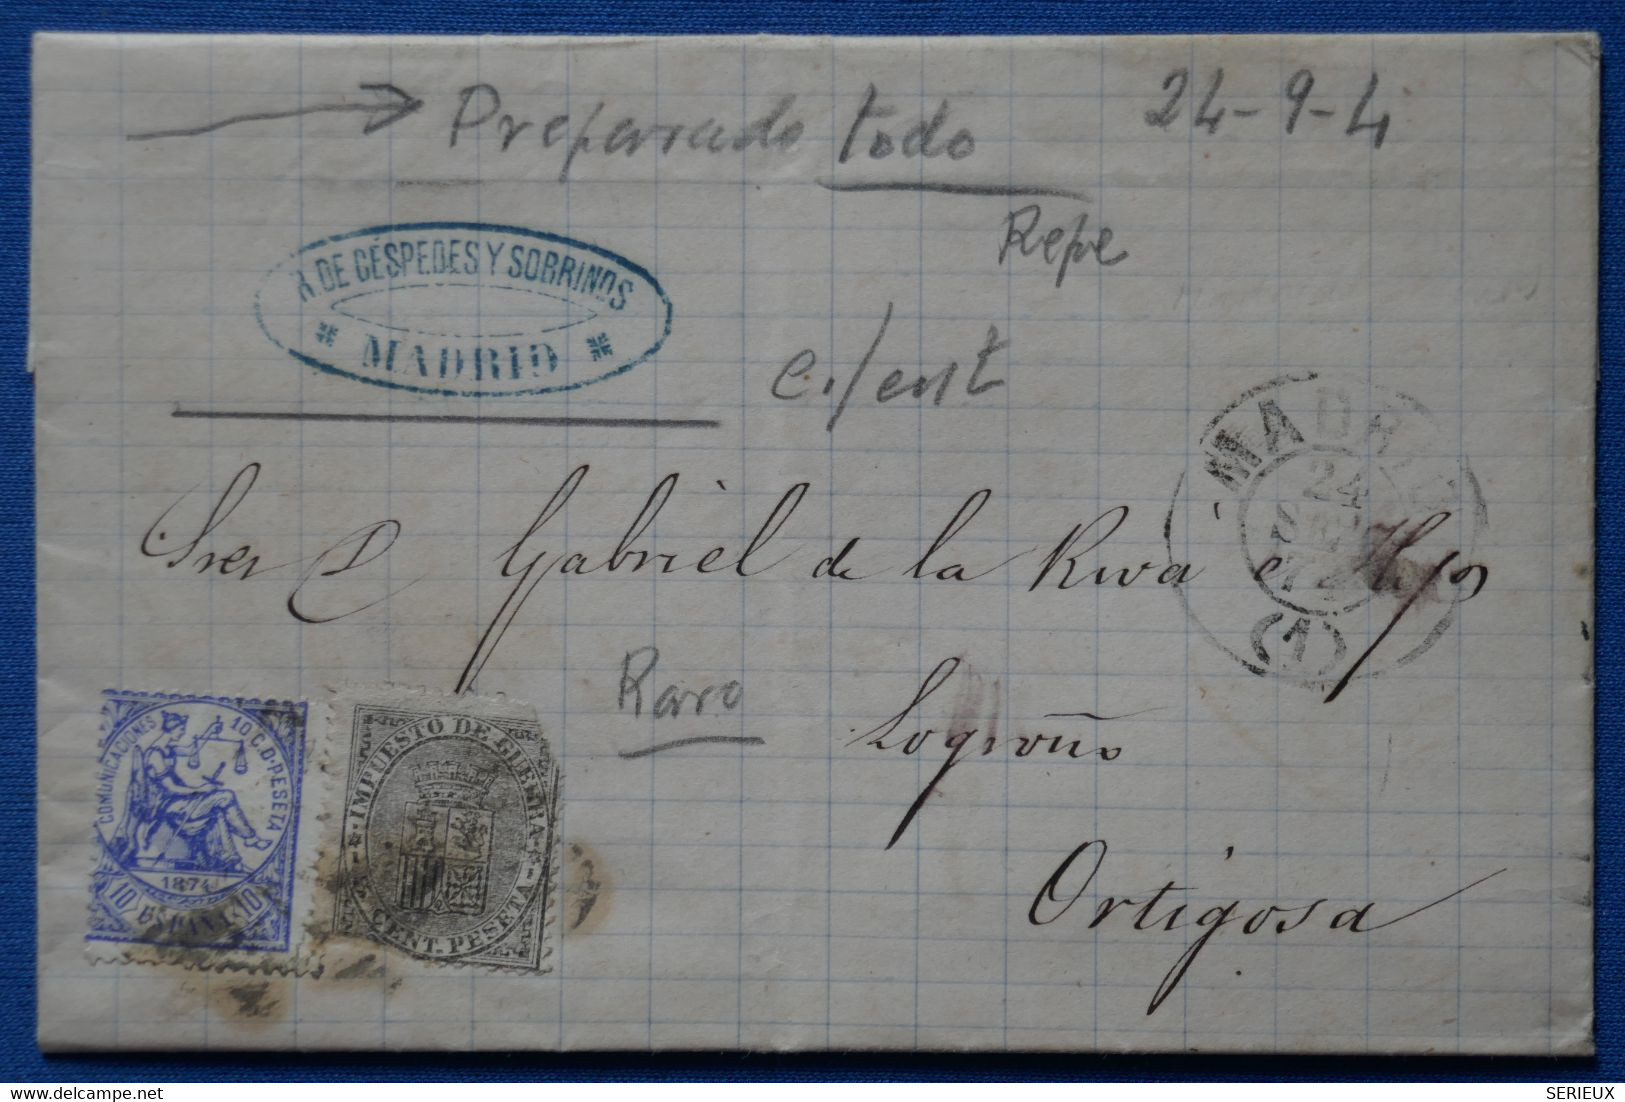 Preparado todo
24-9-4
Repe
R. DE CÉSPEDES Y SOBRINOS
MADRID
c./ent
MADRID
24
SEP
74
(1)
Sres D Gabriel de la Riva é Hijos
Raro
Logroño
Ortigosa
COMUNICACIONES 10 C. D. PESETA
1874
10 ESPAÑA 10
IMPUESTO DE GUERRA
CENT. PESETA
delcampe.net
SERIEUX